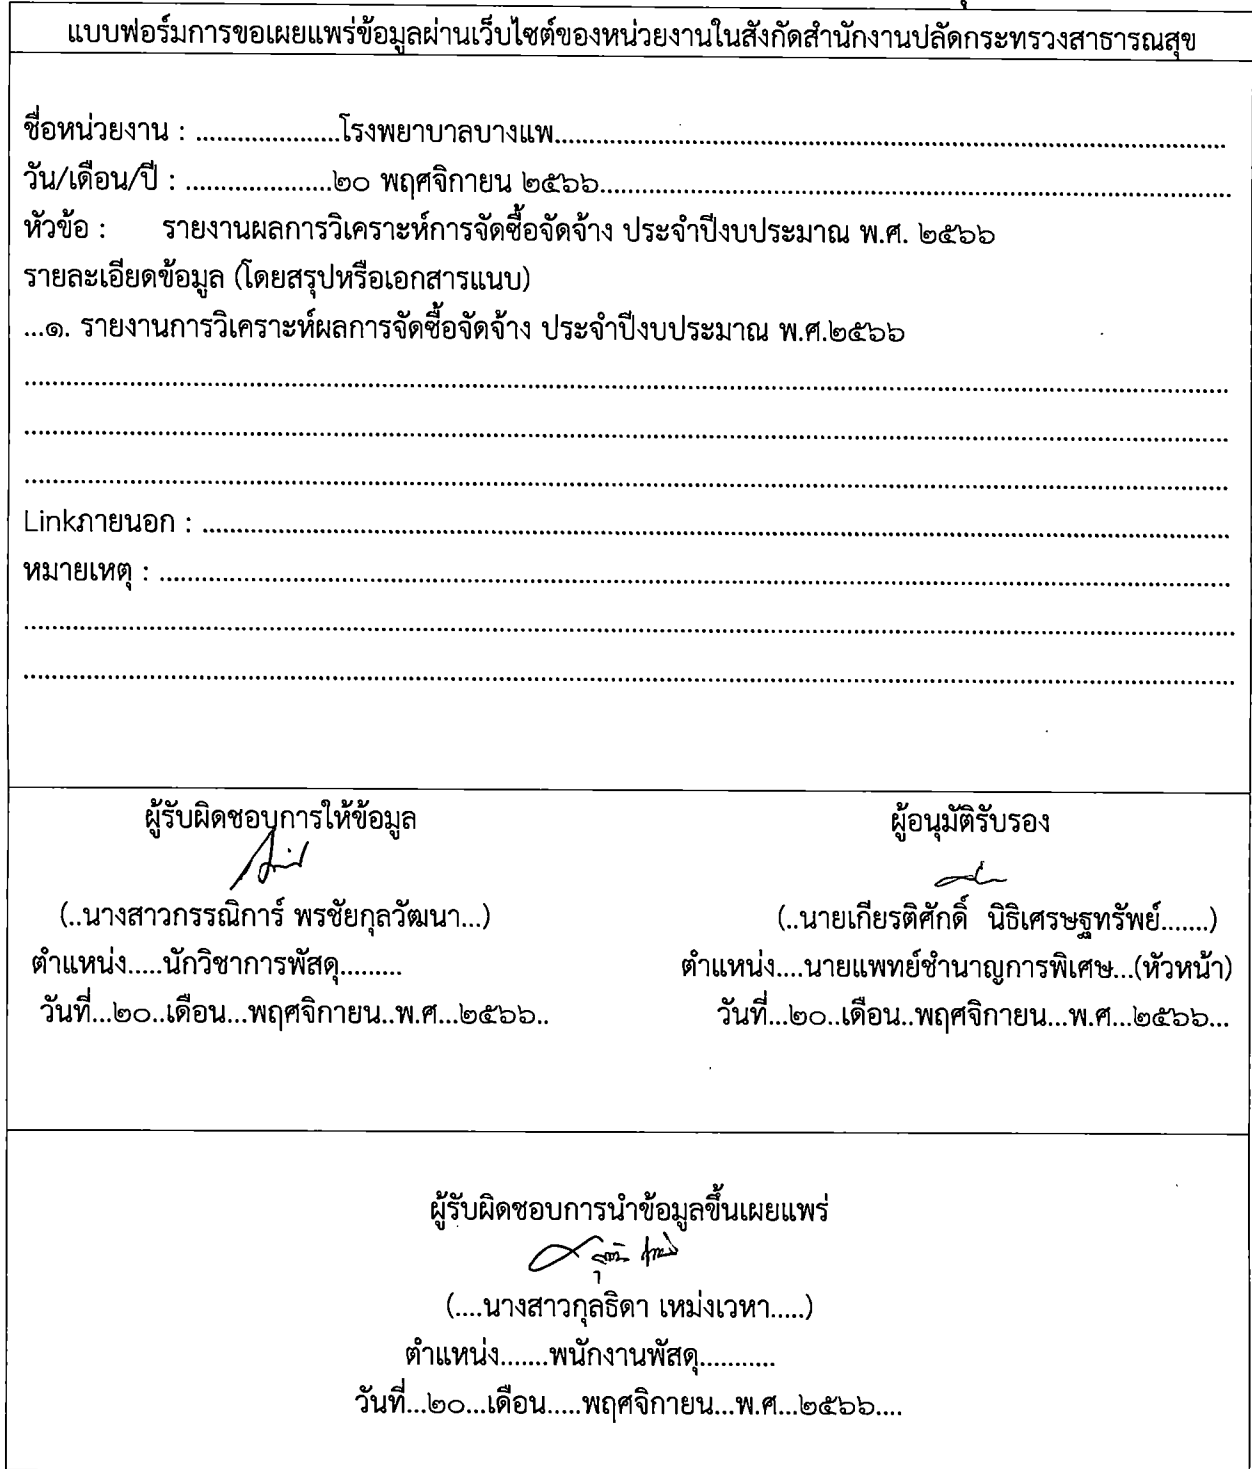 แบบฟอร์มการขอเผยแพร่ข้อมูลผ่านเว็บไซต์ของหน่วยงานในสังกัดสำนักงานปลัดกระทรวงสาธารณสุข
ชื่อหน่วยงาน : .....................โรงพยาบาลบางแพ.....................................................................................................
วัน/เดือน/ปี : .....................๒๐ พฤศจิกายน ๒๕๖๖...............................................................................................
หัวข้อ : รายงานผลการวิเคราะห์การจัดซื้อจัดจ้าง ประจำปีงบประมาณ พ.ศ. ๒๕๖๖
รายละเอียดข้อมูล (โดยสรุปหรือเอกสารแนบ)
...๑. รายงานการวิเคราะห์ผลการจัดซื้อจัดจ้าง ประจำปีงบประมาณ พ.ศ.๒๕๖๖
Linkภายนอก : ....................................................................................................................................................
หมายเหตุ : ..........................................................................................................................................................
ผู้รับผิดชอบการให้ข้อมูล
(..นางสาวกรรณิการ์ พรชัยกุลวัฒนา...)
ตำแหน่ง.....นักวิชาการพัสดุ.........
วันที่...๒๐..เดือน...พฤศจิกายน..พ.ศ...๒๕๖๖..
ผู้อนุมัติรับรอง
(..นายเกียรติศักดิ์ นิธิเศรษฐทรัพย์.......)
ตำแหน่ง....นายแพทย์ชำนาญการพิเศษ...(หัวหน้า)
วันที่...๒๐..เดือน..พฤศจิกายน...พ.ศ...๒๕๖๖...
ผู้รับผิดชอบการนำข้อมูลขึ้นเผยแพร่
(....นางสาวกุลธิดา เหม่งเวหา.....)
ตำแหน่ง.......พนักงานพัสดุ...........
วันที่...๒๐...เดือน.....พฤศจิกายน...พ.ศ...๒๕๖๖....